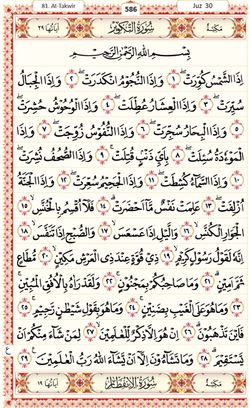 81. At-Takwir 586 Juz 30
مَكِّيَّة سُورَةُ التَّكْوِيرِ آيَاتُهَا ٢٩
بِسْمِ اللَّهِ الرَّحْمَٰنِ الرَّحِيمِ
إِذَا الشَّمْسُ كُوِّرَتْ ١ وَإِذَا النُّجُومُ انكَدَرَتْ ٢ وَإِذَا الْجِبَالُ
سُيِّرَتْ ٣ وَإِذَا الْعِشَارُ عُطِّلَتْ ٤ وَإِذَا الْوُحُوشُ حُشِرَتْ
٥ وَإِذَا الْبِحَارُ سُجِّرَتْ ٦ وَإِذَا النُّفُوسُ زُوِّجَتْ ٧ وَإِذَا
الْمَوْءُودَةُ سُئِلَتْ ٨ بِأَيِّ ذَنبٍ قُتِلَتْ ٩ وَإِذَا الصُّحُفُ نُشِرَتْ
١٠ وَإِذَا السَّمَاءُ كُشِطَتْ ١١ وَإِذَا الْجَحِيمُ سُعِّرَتْ ١٢ وَإِذَا الْجَنَّةُ
أُزْلِفَتْ ١٣ عَلِمَتْ نَفْسٌ مَّا أَحْضَرَتْ ١٤ فَلَا أُقْسِمُ بِالْخُنَّسِ ١٥
الْجَوَارِ الْكُنَّسِ ١٦ وَاللَّيْلِ إِذَا عَسْعَسَ ١٧ وَالصُّبْحِ إِذَا تَنَفَّسَ ١٨
إِنَّهُ لَقَوْلُ رَسُولٍ كَرِيمٍ ١٩ ذِي قُوَّةٍ عِندَ ذِي الْعَرْشِ مَكِينٍ ٢٠ مُّطَاعٍ
ثَمَّ أَمِينٍ ٢١ وَمَا صَاحِبُكُم بِمَجْنُونٍ ٢٢ وَلَقَدْ رَآهُ بِالْأُفُقِ الْمُبِينِ
٢٣ وَمَا هُوَ عَلَى الْغَيْبِ بِضَنِينٍ ٢٤ وَمَا هُوَ بِقَوْلِ شَيْطَانٍ رَّجِيمٍ ٢٥
فَأَيْنَ تَذْهَبُونَ ٢٦ إِنْ هُوَ إِلَّا ذِكْرٌ لِّلْعَالَمِينَ ٢٧ لِمَن شَاءَ مِنكُمْ أَن
يَسْتَقِيمَ ٢٨ وَمَا تَشَاءُونَ إِلَّا أَن يَشَاءَ اللَّهُ رَبُّ الْعَالَمِينَ ٢٩
ع
مَكِّيَّة سُورَةُ الِانفِطَارِ آيَاتُهَا ١٩